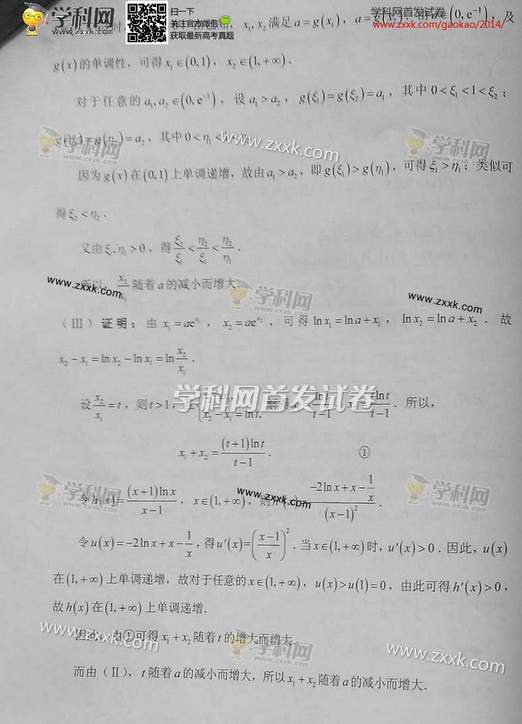 学科网 ZXXK.COM
扫一下
关注官方微信
获取最新高考真题
学科网首发试卷
www.zxxk.com/gaokao/2014/
x₁, x₂ 满足 a = g(x₁), (0, e⁻¹), 及
g(x) 的单调性, 可得 x₁∈(0,1), x₂∈(1,+∞).
对于任意的 a₁, a₂∈(0, e⁻¹), 设 a₁ > a₂, g(ξ₁) = g(ξ₂) = a₁, 其中 0 < ξ₁ < 1 < ξ₂;
= g(η₂) = a₂, 其中 0 < η₁ <
因为 g(x) 在 (0,1) 上单调递增, 故由 a₁ > a₂, 即 g(ξ₁) > g(η₁), 可得 ξ₁ > η₁; 类似可
得 ξ₂ < η₂.
又由 ξ₁, η₁ > 0, 得 ξ₂/ξ₁ < η₂/ξ₁ < η₂/η₁.
所以, x₂/x₁ 随着 a 的减小而增大.
(Ⅲ) 证明: 由 x₁ = ae^{x₁}, x₂ = ae^{x₂}, 可得 ln x₁ = ln a + x₁, ln x₂ = ln a + x₂. 故
x₂ − x₁ = ln x₂ − ln x₁ = ln x₂/x₁.
设 x₂/x₁ = t, 则 t > 1, x₂ − x₁ = ln t, ln t/(t−1), t ln t/(t−1). 所以,
x₁ + x₂ = (t+1)ln t/(t−1). ①
令 h(x) = (x+1)ln x/(x−1), x∈(1,+∞), 则 (−2ln x + x − 1/x)/(x−1)².
令 u(x) = −2ln x + x − 1/x, 得 u′(x) = ((x−1)/x)². 当 x∈(1,+∞) 时, u′(x) > 0. 因此, u(x)
在 (1,+∞) 上单调递增, 故对于任意的 x∈(1,+∞), u(x) > u(1) = 0, 由此可得 h′(x) > 0,
故 h(x) 在 (1,+∞) 上单调递增.
因此, 由①可得 x₁ + x₂ 随着 t 的增大而增大.
而由 (Ⅱ), t 随着 a 的减小而增大, 所以 x₁ + x₂ 随着 a 的减小而增大.